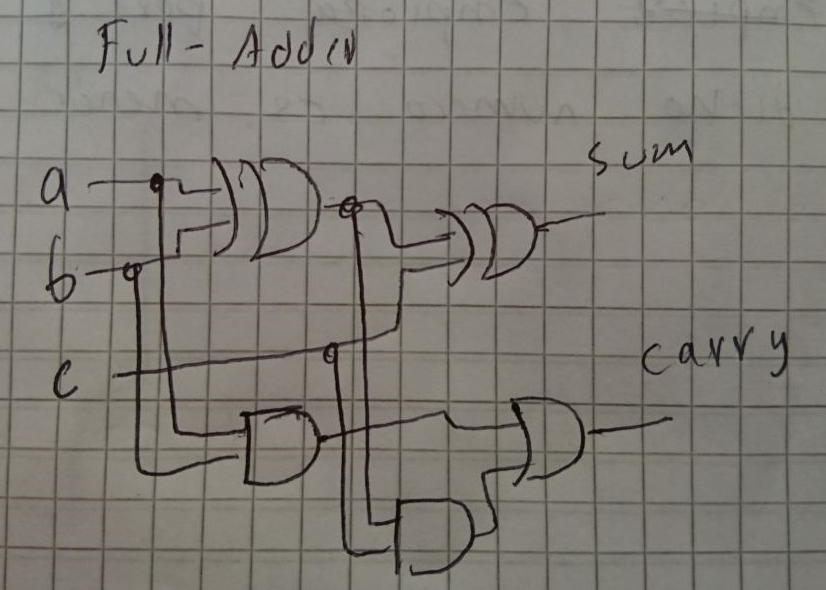 Full-Adder
a
sum
b
carry
c